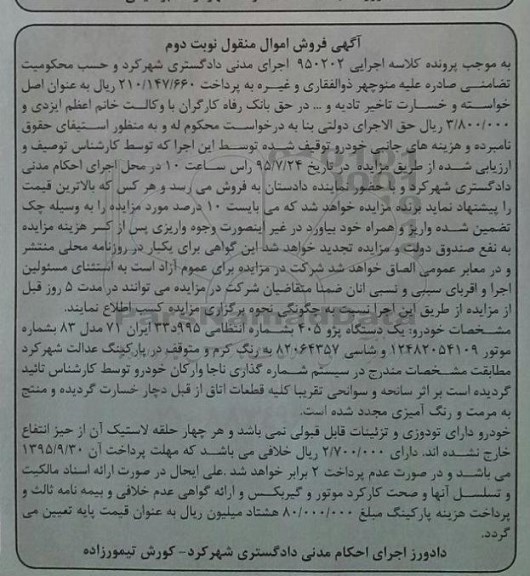 آگهی فروش اموال منقول نوبت دوم
به موجب پرونده کلاسه اجرایی ۹۵۰۲۰۲ اجرای مدنی دادگستری شهرکرد و حسب محکومیت
تضامنی صادره علیه منوچهر ذوالفقاری و غیره به پرداخت ۲۱۰/۱۴۷/۶۶۰ ریال به عنوان اصل
خواسته و خسارت تاخیر تادیه و ... در حق بانک رفاه کارگران با وکالت خانم اعظم ایزدی و
۳/۸۰۰/۰۰۰ ریال حق الاجرای دولتی بنا به درخواست محکوم له و به منظور استیفای حقوق
نامبرده و هزینه های جانبی خودرو توقیف شده توسط این اجرا که توسط کارشناس توصیف و
ارزیابی شده از طریق مزایده در تاریخ ۹۵/۷/۲۴ راس ساعت ۱۰ در محل اجرای احکام مدنی
دادگستری شهرکرد و با حضور نماینده دادستان به فروش می رسد و هر کس که بالاترین قیمت
را پیشنهاد نماید برنده مزایده خواهد شد که می بایست ۱۰ درصد مورد مزایده را به وسیله چک
تضمین شده واریز و همراه خود بیاورد در غیر اینصورت وجوه واریزی پس از کسر هزینه مزایده
به نفع صندوق دولت و مزایده تجدید خواهد شد این گواهی برای یکبار در روزنامه محلی منتشر
و در معابر عمومی الصاق خواهد شد شرکت در مزایده برای عموم آزاد است به استثنای مسئولین
اجرا و اقربای سببی و نسبی انان ضمنا متقاضیان شرکت در مزایده می توانند در مدت ۵ روز قبل
از مزایده از طریق این اجرا نسبت به چگونگی نحوه برگزاری مزایده کسب اطلاع نمایند.
مشخصات خودرو: یک دستگاه پژو ۴۰۵ بشماره انتظامی ۹۹۵د۳۳ ایران ۷۱ مدل ۸۳ بشماره
موتور ۱۲۴۸۲۰۵۴۱۰۹ و شاسی ۸۲۰۶۴۳۵۷ به رنگ کرم و متوقف در پارکینگ عدالت شهرکرد
مطابقت مشخصات مندرج در سیستم شماره گذاری ناجا وارکان خودرو توسط کارشناس تائید
گردیده است بر اثر سانحه و سوانحی تقریبا کلیه قطعات اتاق از قبل دچار خسارت گردیده و منتج
به مرمت و رنگ آمیزی مجدد شده است.
خودرو دارای تودوزی و تزئینات قابل قبولی نمی باشد و هر چهار حلقه لاستیک آن از حیز انتفاع
خارج نشده اند. دارای ۲/۷۰۰/۰۰۰ ریال خلافی می باشد که مهلت پرداخت آن ۱۳۹۵/۹/۳۰
می باشد و در صورت عدم پرداخت ۲ برابر خواهد شد .علی ایحال در صورت ارائه اسناد مالکیت
و تسلسل آنها و صحت کارکرد موتور و گیربکس و ارائه گواهی عدم خلافی و بیمه نامه ثالث و
پرداخت هزینه پارکینگ مبلغ ۸۰/۰۰۰/۰۰۰ هشتاد میلیون ریال به عنوان قیمت پایه تعیین می
گردد.
دادورز اجرای احکام مدنی دادگستری شهرکرد- کورش تیمورزاده